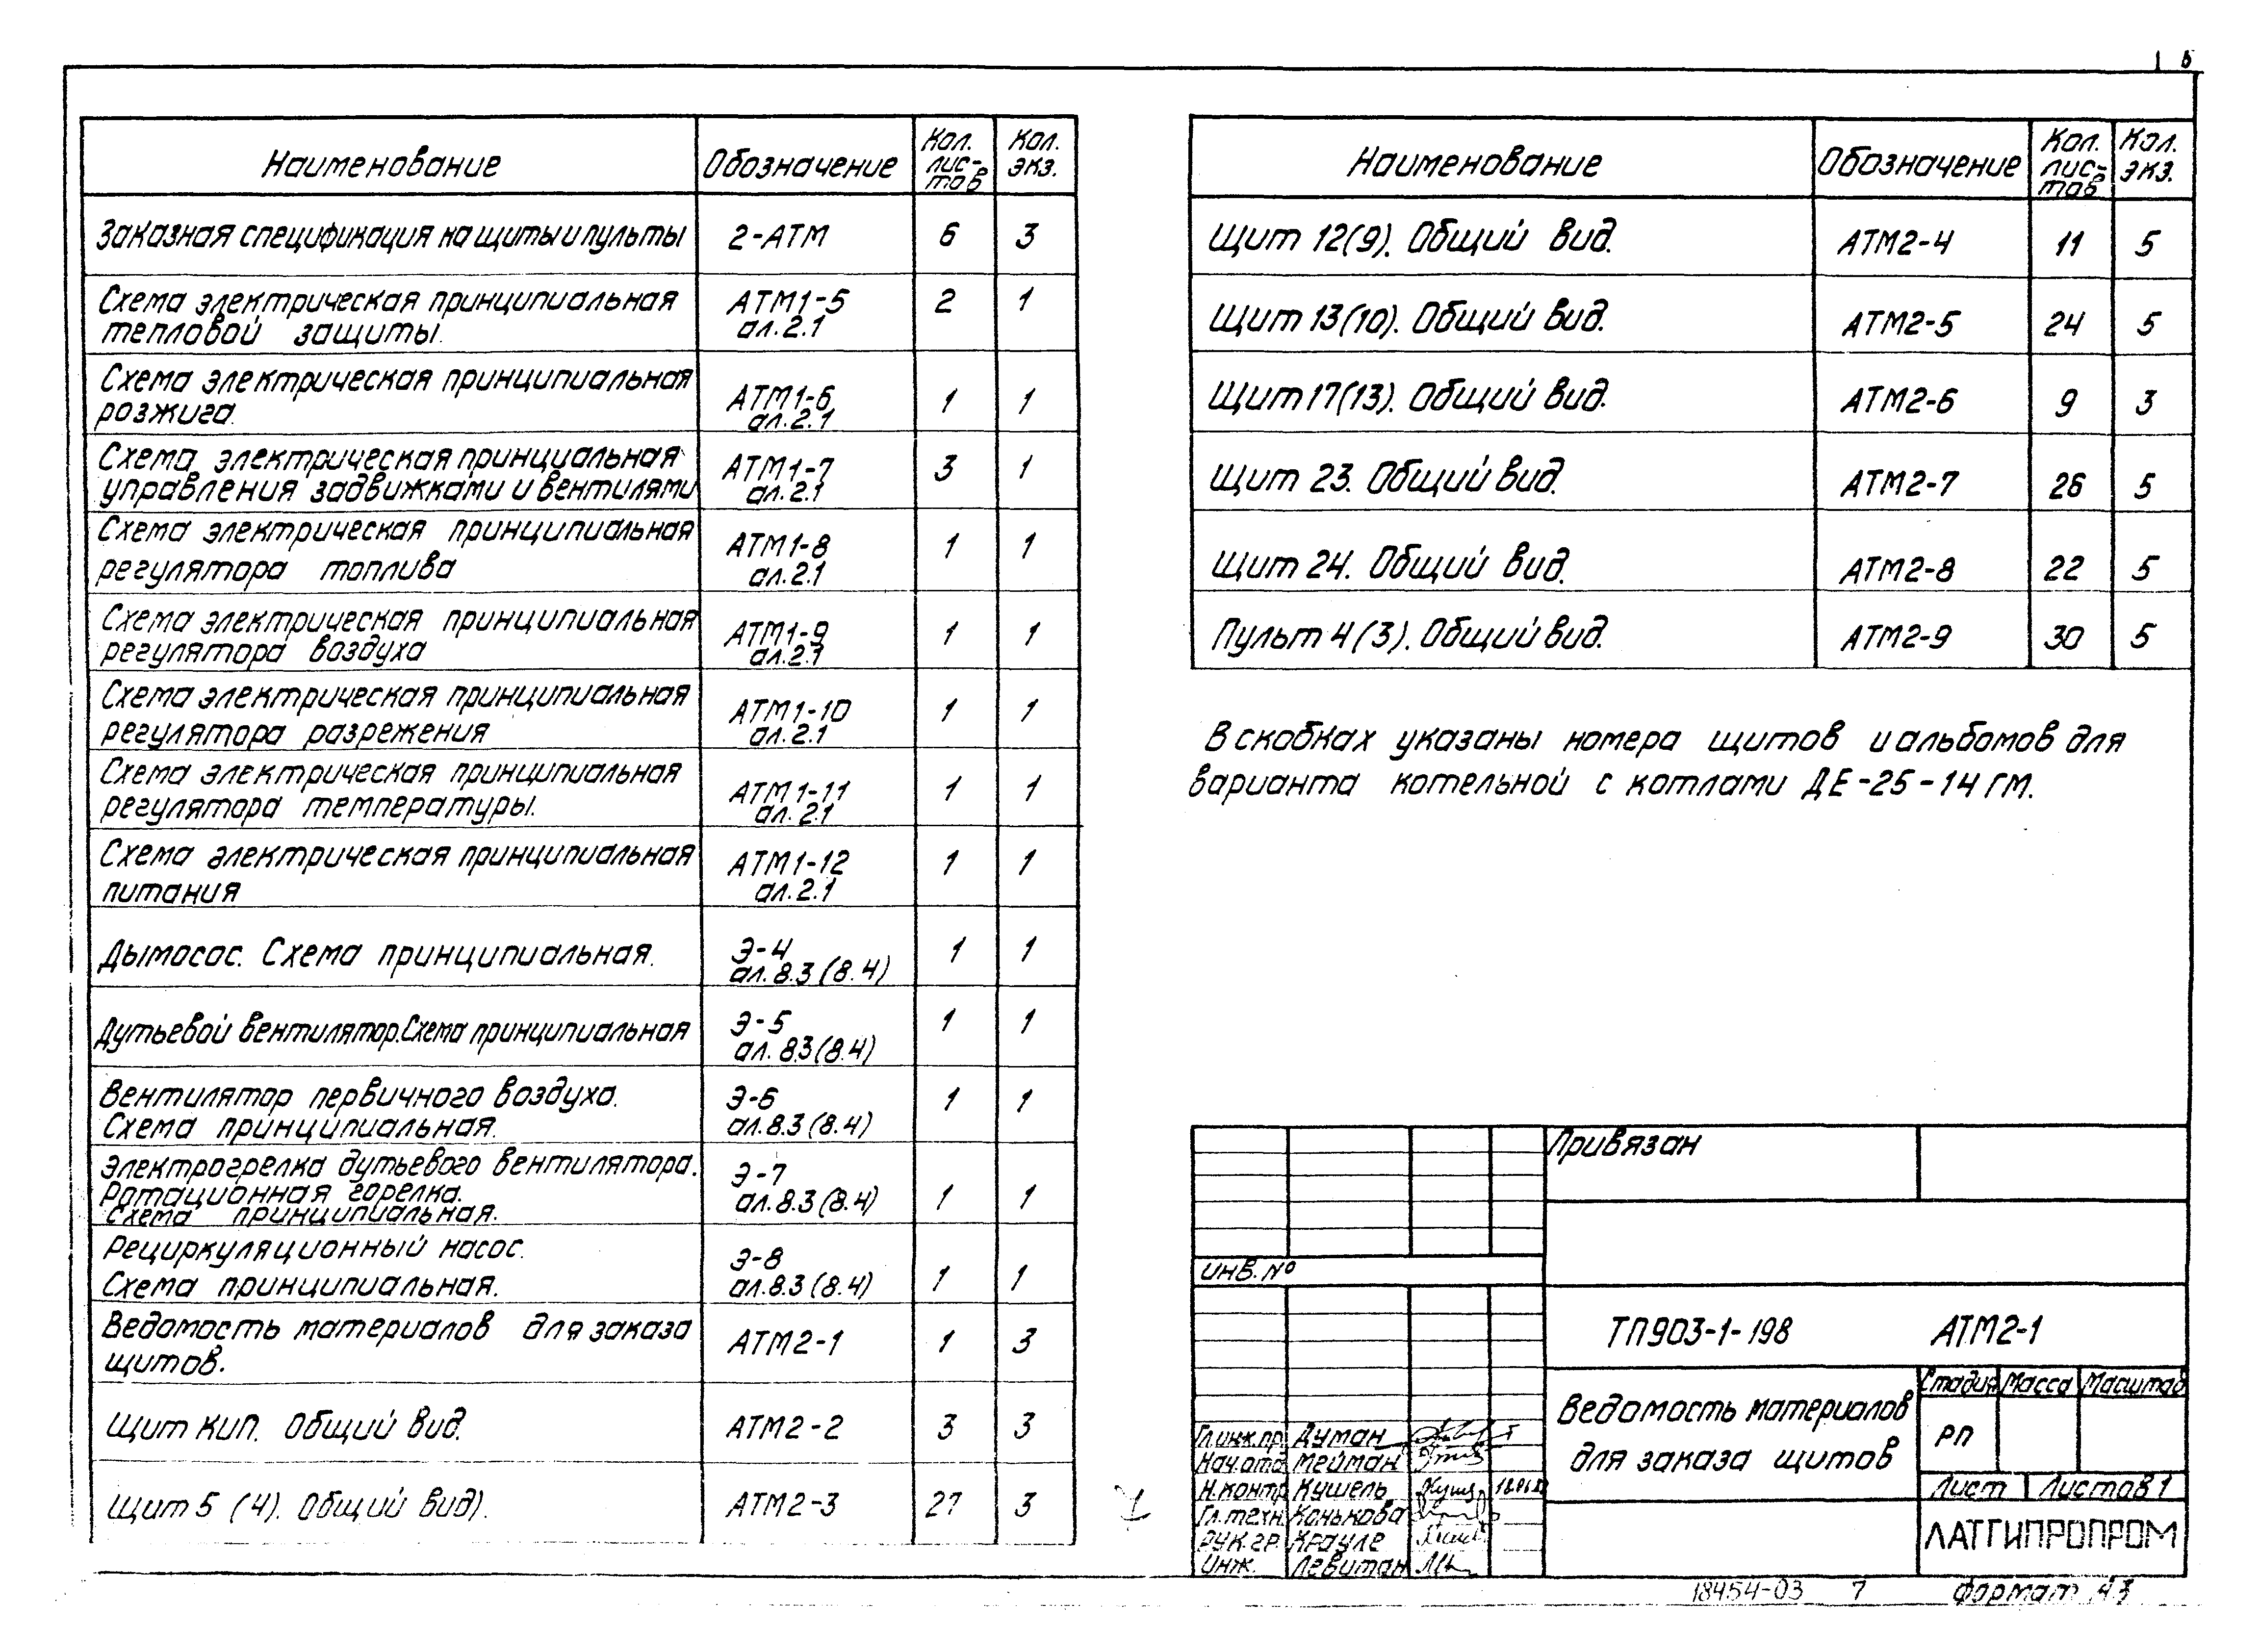 6
Наименование Обозначение Кол. лис- тов Кол. экз.
Заказная спецификация на щиты и пульты 2-АТМ 6 3
Схема электрическая принципиальная АТМ1-5 2 1
тепловой защиты. ал.2.1
Схема электрическая принципиальная АТМ1-6 1 1
розжига. ал.2.1
Схема электрическая принципиальная АТМ1-7 3 1
управления задвижками и вентилями ал.2.1
Схема электрическая принципиальная АТМ1-8 1 1
регулятора топлива ал.2.1
Схема электрическая принципиальная АТМ1-9 1 1
регулятора воздуха ал.2.1
Схема электрическая принципиальная АТМ1-10 1 1
регулятора разрежения ал.2.1
Схема электрическая принципиальная АТМ1-11 1 1
регулятора температуры. ал.2.1
Схема электрическая принципиальная АТМ1-12 1 1
питания ал.2.1
Дымосос. Схема принципиальная. Э-4 1 1
ал.8.3(8.4)
Дутьевой вентилятор.Схема принципиальная Э-5 1 1
ал.8.3(8.4)
Вентилятор первичного воздуха. Э-6 1 1
Схема принципиальная. ал.8.3(8.4)
Электрогрелка дутьевого вентилятора. Э-7
Ротационная горелка. ал.8.3(8.4) 1 1
Схема принципиальная.
Рециркуляционный насос. Э-8
Схема принципиальная. ал.8.3(8.4) 1 1
Ведомость материалов для заказа АТМ2-1 1 3
щитов.
Щит КИП. Общий вид. АТМ2-2 3 3
Щит 5 (4). Общий вид). АТМ2-3 27 3
Наименование Обозначение Кол. лис- тов Кол. экз.
Щит 12(9). Общий вид. АТМ2-4 11 5
Щит 13(10). Общий вид. АТМ2-5 24 5
Щит 17(13). Общий вид. АТМ2-6 9 3
Щит 23. Общий вид. АТМ2-7 26 5
Щит 24. Общий вид. АТМ2-8 22 5
Пульт 4(3). Общий вид. АТМ2-9 30 5
В скобках указаны номера щитов и альбомов для
варианта котельной с котлами ДЕ-25-14ГМ.
Привязан
ИНВ.№
ТП903-1-198 АТМ2-1
Ведомость материалов
для заказа щитов
Стадия Масса Масштаб
РП
Лист Листов 1
ЛАТГИПРОПРОМ
Гл.инж.пр. Думан
Нач.отд Мейман
Н.контр Кушель
Гл.техн. Конькова
Рук.гр. Крауле
Инж. Левитан
18454-03 7 формат А3